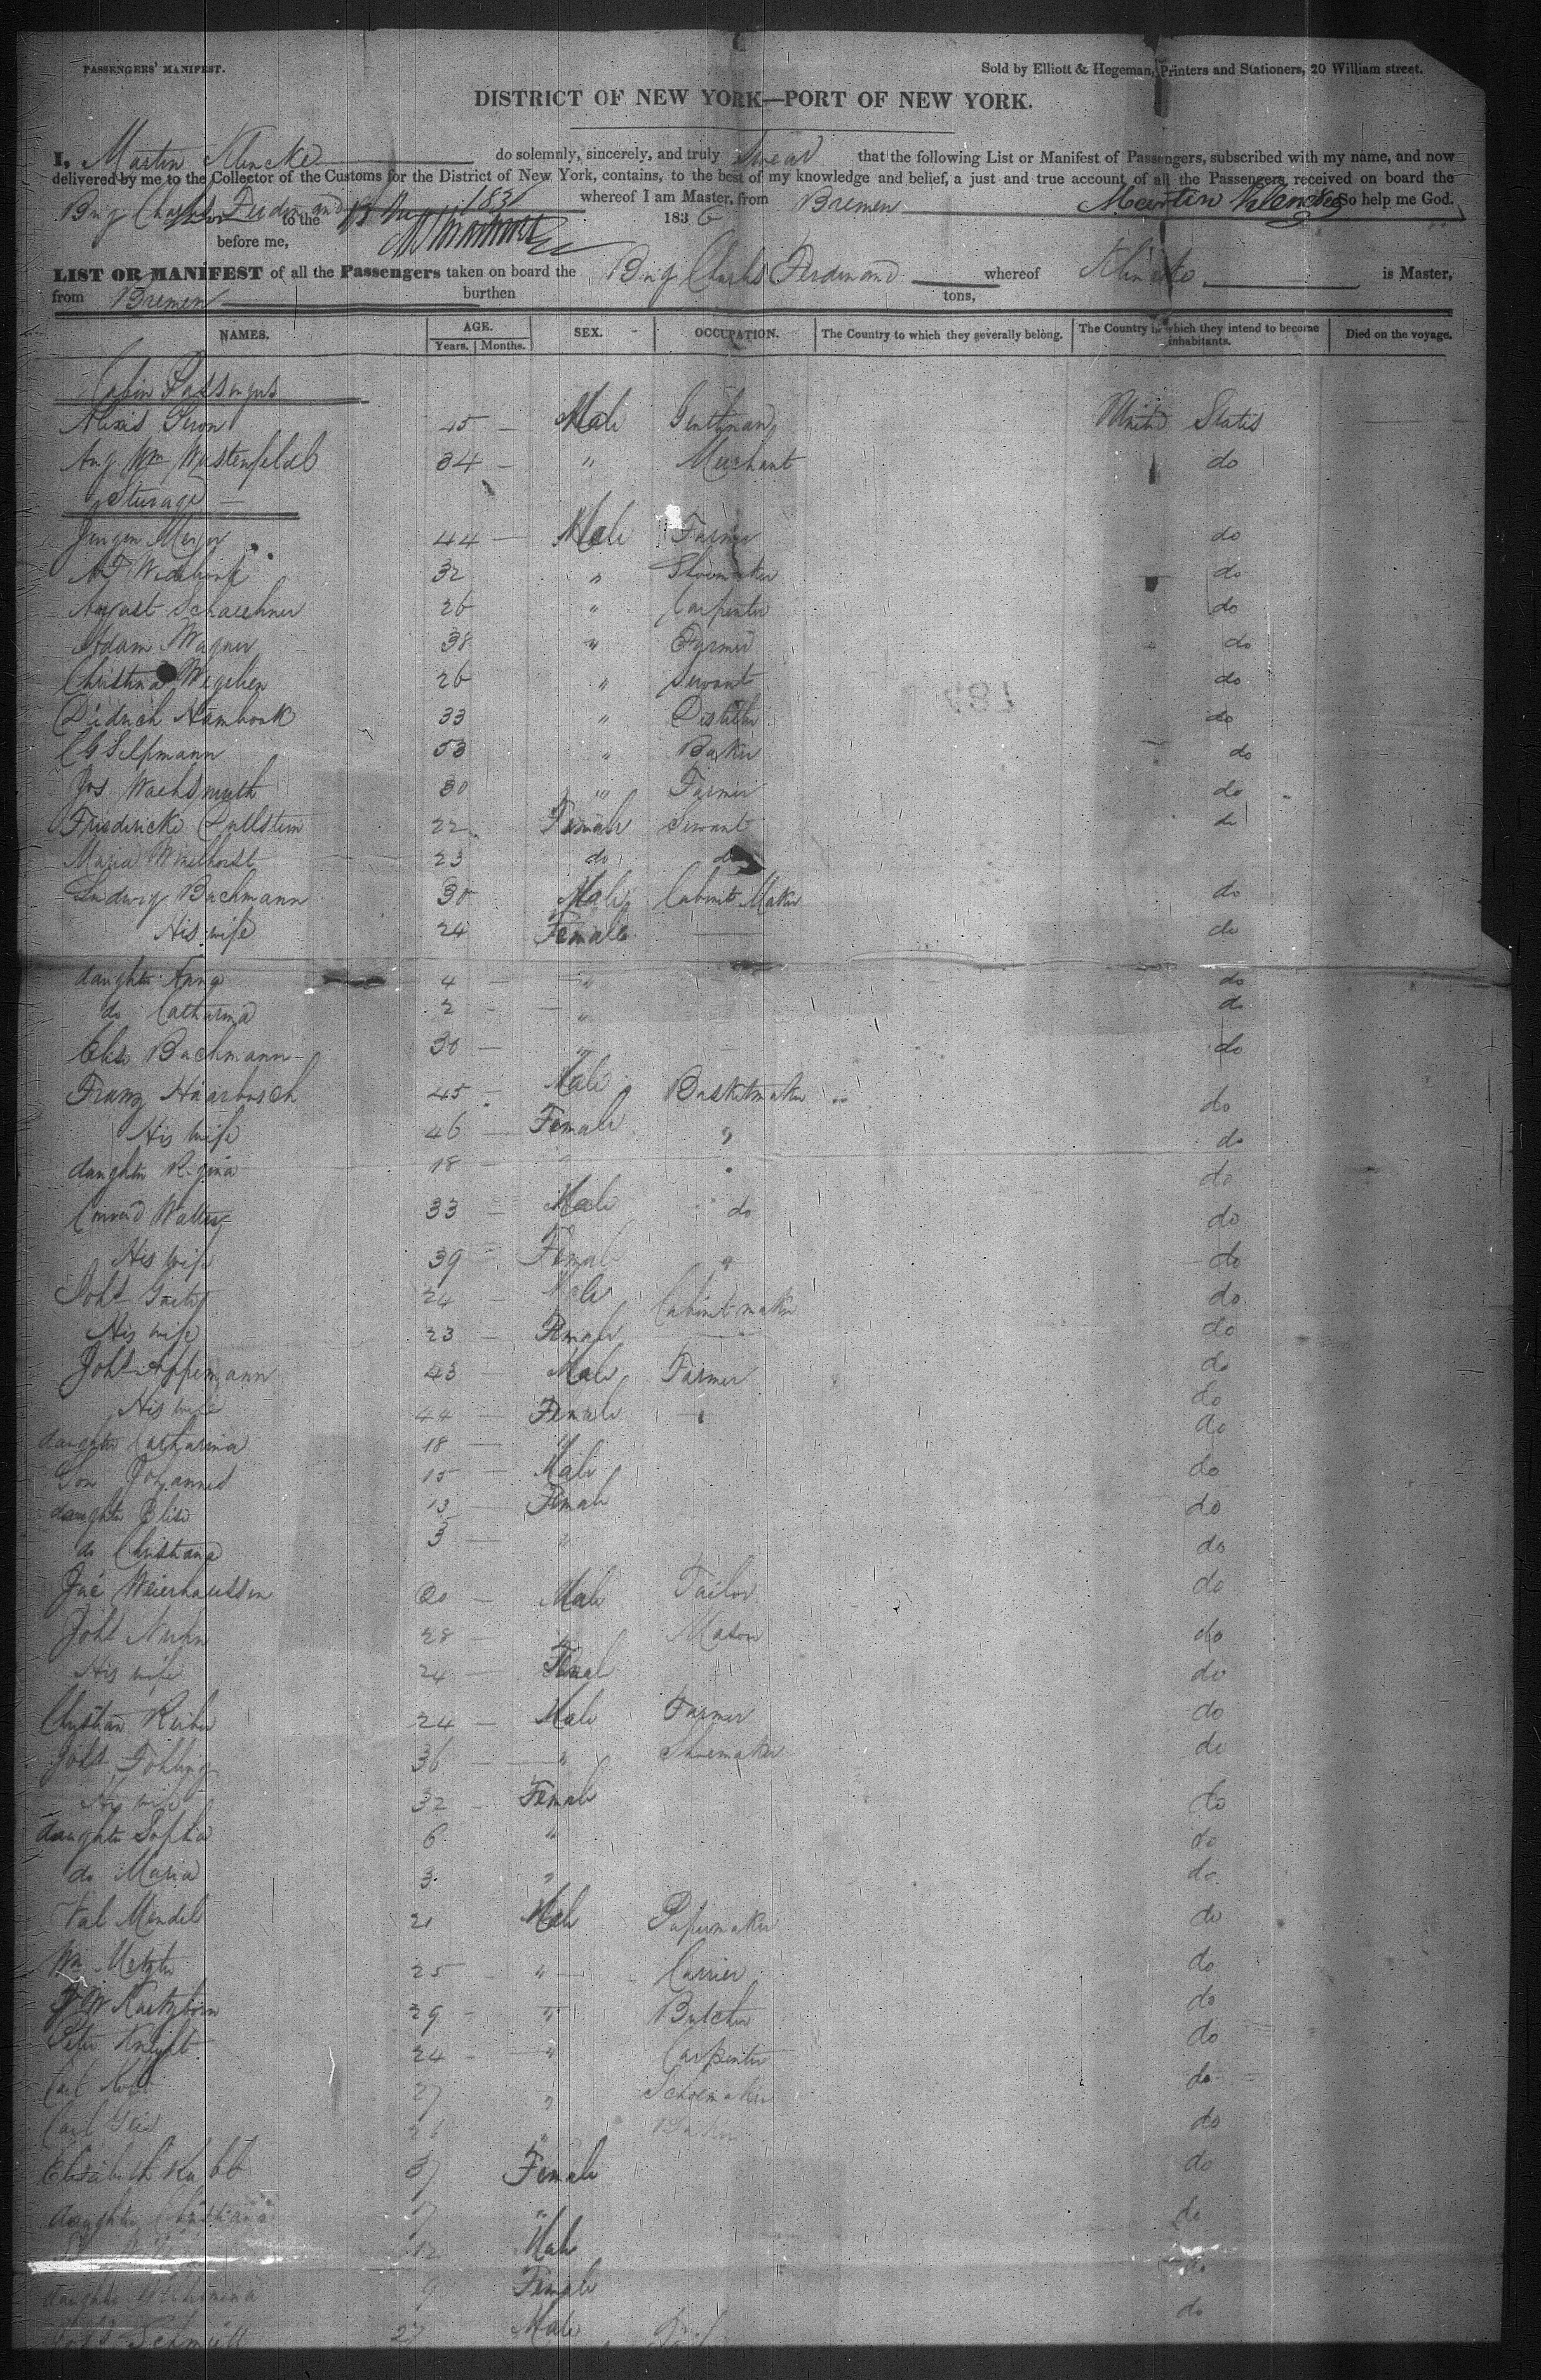 PASSENGERS' MANIFEST.
Sold by Elliott & Hegeman, Printers and Stationers, 20 William street.
DISTRICT OF NEW YORK—PORT OF NEW YORK.
I, Martin Klincke do solemnly, sincerely, and truly Swear that the following List or Manifest of Passengers, subscribed with my name, and now
delivered by me to the Collector of the Customs for the District of New York, contains, to the best of my knowledge and belief, a just and true account of all the Passengers received on board the
Brig Ferdinand whereof I am Master, from Bremen Martin So help me God.
to the 1836
before me,
LIST OR MANIFEST of all the Passengers taken on board the Brig Charles Ferdinand whereof Klincke is Master,
from Bremen burthen tons,
NAMES. AGE. SEX. OCCUPATION. The Country to which they severally belong. The Country in which they intend to become inhabitants. Died on the voyage.
Years. Months.
Cabin Passengers
Alexis 45 Male Gentleman United States
Aug Wm Wustenfeldt 34 " Merchant do
Sturage
Jurgen Meyer 44 Male Farmer do
32 " Shoemaker do
August Schaechner 26 " Carpenter do
Adam Wagner 38 " Farmer do
Christina 26 " Servant do
Diedrich 33 " Distiller do
53 " Baker do
Jos Wachsmuth 30 " Farmer do
Friedericke Dullstein 22 Female Servant do
Maria 23 do do
Ludwig Bachmann 30 Male Cabinet Maker do
His wife 24 Female do
daughter Anna 4 " do
do Catharina 2 " do
Elise Bachmann 30 " do
Franz Haarbusch 45 Male Basketmaker do
His wife 46 Female " do
daughter Regina 18 " do
Conrad Walter 33 Male do do
His wife 39 Female " do
Joh. 24 Male Cabinet maker do
His wife 23 Female do
Joh. Appemann 43 Male Farmer do
His wife 44 Female do
daughter Catharina 18 " do
Son Johannes 15 Male do
daughter Elise 13 Female do
do Christiana 3 " do
Weierhaussen 20 Male Tailor do
Joh. 28 " Mason do
His wife 24 Femal do
Christian 24 Male Farmer do
Joh. Fohling 36 " Shoemaker do
His wife 32 Female do
daughter Sophia 6 " do
do Maria 3 " do
Val Mendel 21 Male Papermaker do
Wm Metzler 25 " Currier do
29 " Butcher do
Peter 24 " Carpenter do
Carl 27 " Schoemaker do
Carl 26 " Baker do
Elisabeth 37 Female do
daughter Christiana 17 " do
12 Male do
daughter 9 Female do
Schmidt 27 Male